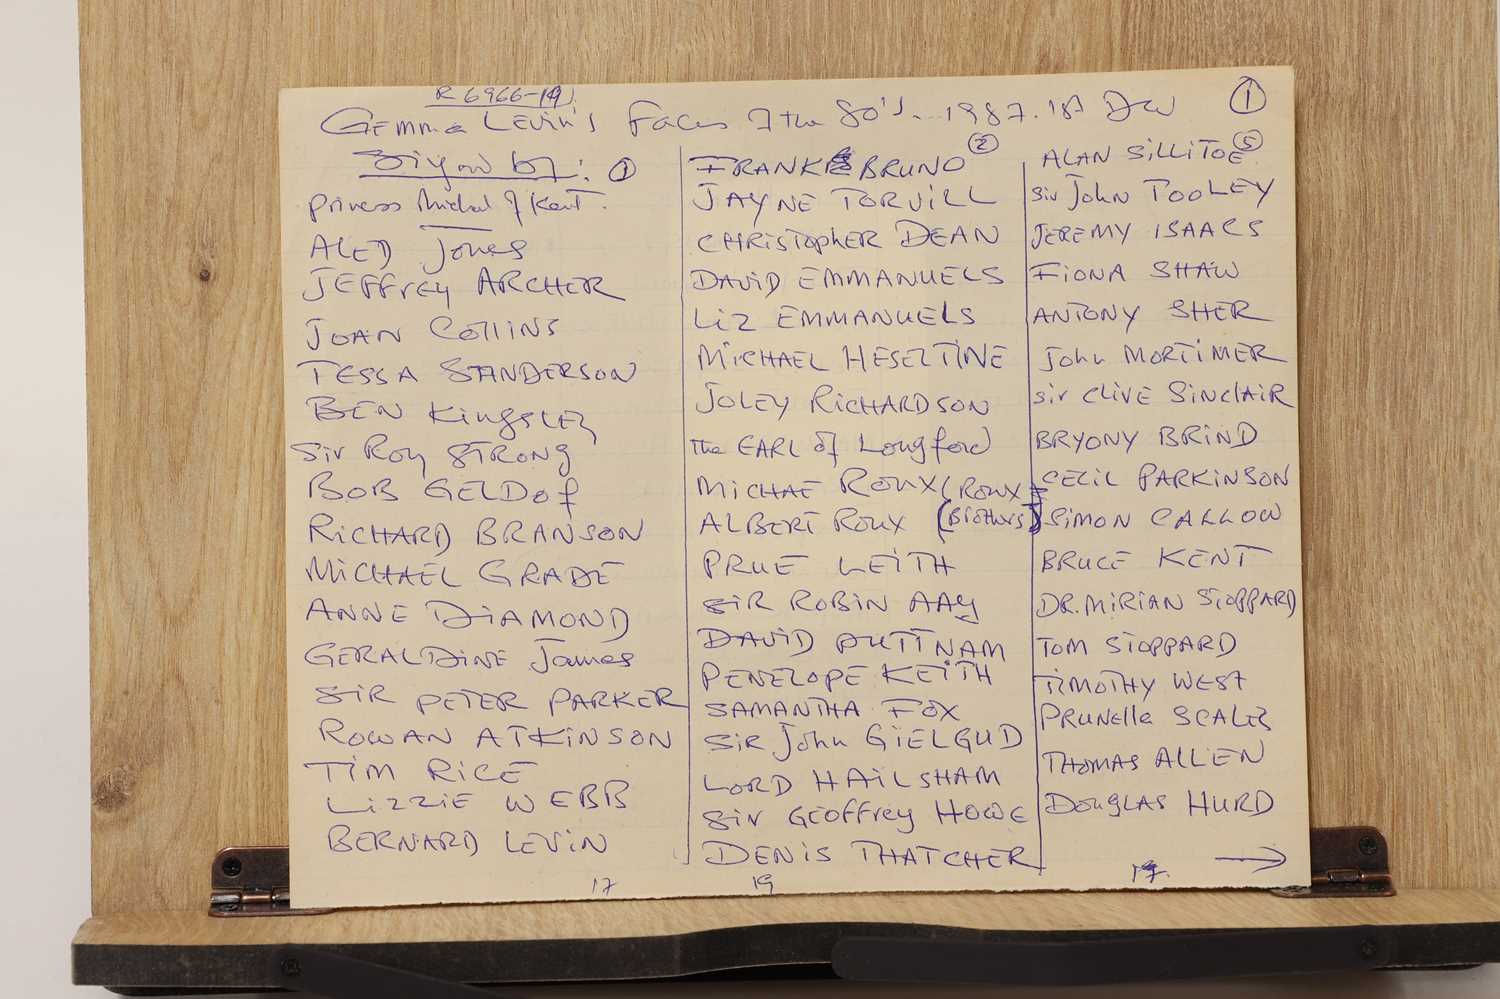 R 6966-19
Gemma LEVIN'S Faces of the 80's. 1987. 1st DW ①
Signed by: ①
princess Michael of Kent.
ALED Jones
JEFFrey ARCHER
JOAN COLLINS
TESSA SANDERSON
BEN KingsLEy
Sir Roy STRONg
BOB GELDOf
RICHARD BRANSON
MICHAEL GRADE
ANNE DiAMOND
GERALDiNE James
SIR PETER PARKER
ROWAN ATKINSON
TIM RICE
LIZZIE WEBB
BERNARD LEViN
17
②
FRANK BRUNO
JAYNE TORVILL
CHRISTOphER DEAN
DAVID EMMANUELS
LiZ EMMANUELS
MICHAEL HESELTINE
JOLEY RICHARDSON
The EARL of Longford
MICHAE ROUX (ROUX =
ALBERT ROUX (Brothers)
PRUE LEITH
SIR ROBIN AAy
DAVID PUTTNAM
PENELOPE KEITH
SAMANTHA FOX
SIR John GIELGUD
LORD HAILSHAM
Sir GEOffrey HOWE
DENIS THATCHER
19
ALAN SILLITOE
Sir John TOOLEY
JEREMY ISAACS
FiONA SHAW
ANTONY SHER
John MORTIMER
Sir CLIVE SINCLAIR
BRYONY BRIND
CECIL PARKINSON
SIMON CALLOW
BRUCE KENT
DR. MIRIAN STOPPARD
TOM STOPPARD
TIMOTHY WEST
PRUNElla SCALES
THOMAS ALLEN
DOUgLAS HURD
→